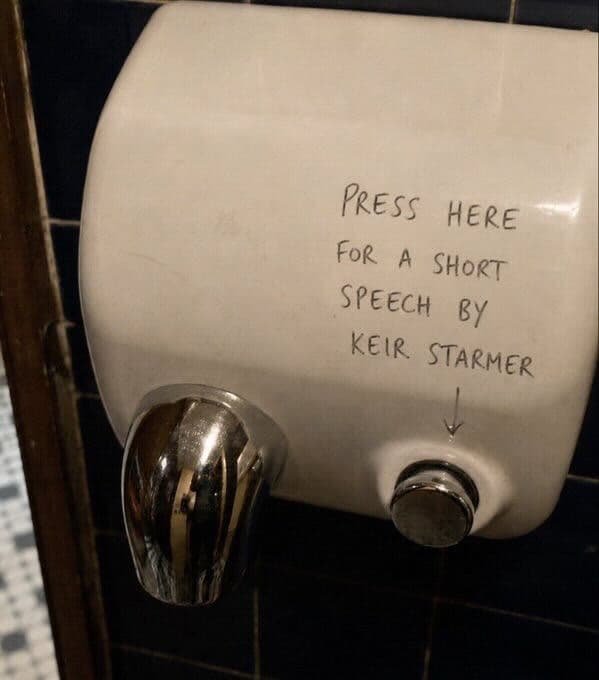 PRESS HERE
FOR A SHORT
SPEECH BY
KEIR STARMER